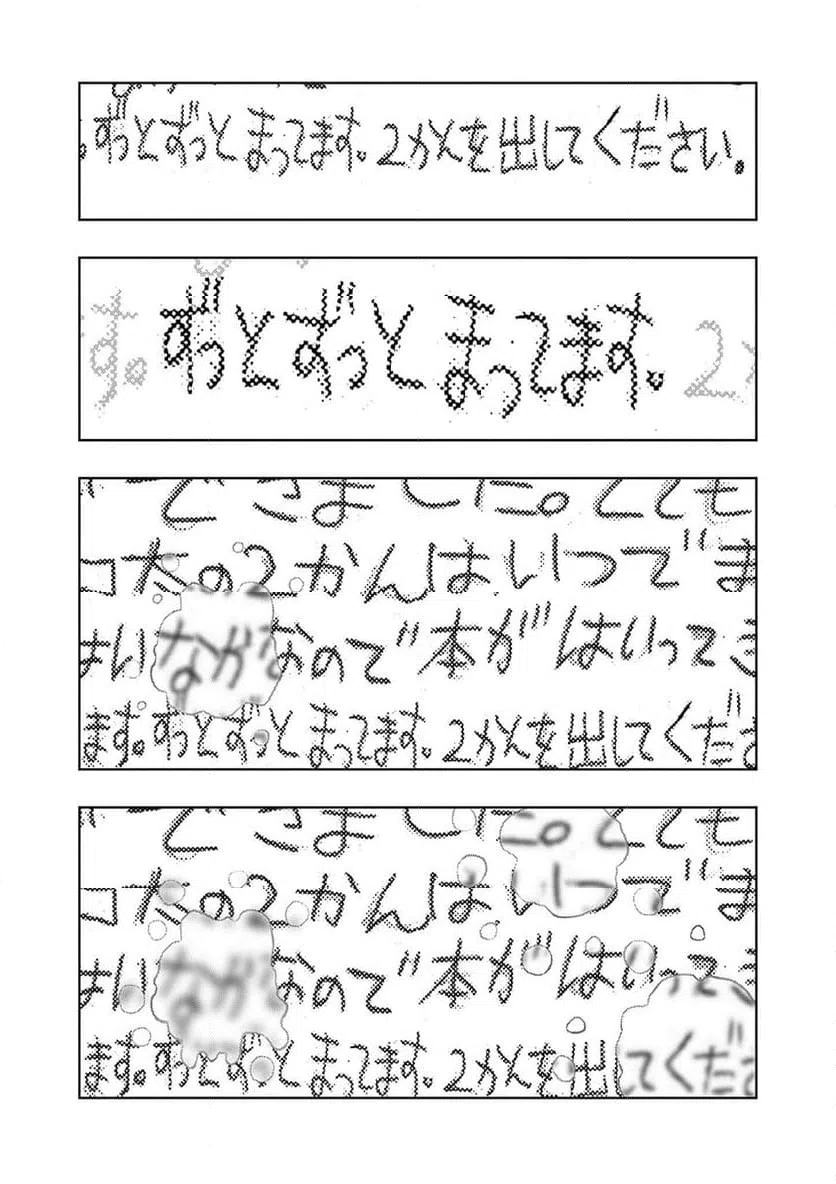 。ずっとずっとまってます。2かんを出してください。
す。ずっとずっとまってます。2
でさました。とても
コ大の2かんはいつでま
はいながなので"本がはいってき
ます。ずっとずっとまってます。2かんを出してくださ
でさました。とても
の2かんは でま
はいながなので"本がはいってき
ます。ずっと とまってます。2かんを出してくださ